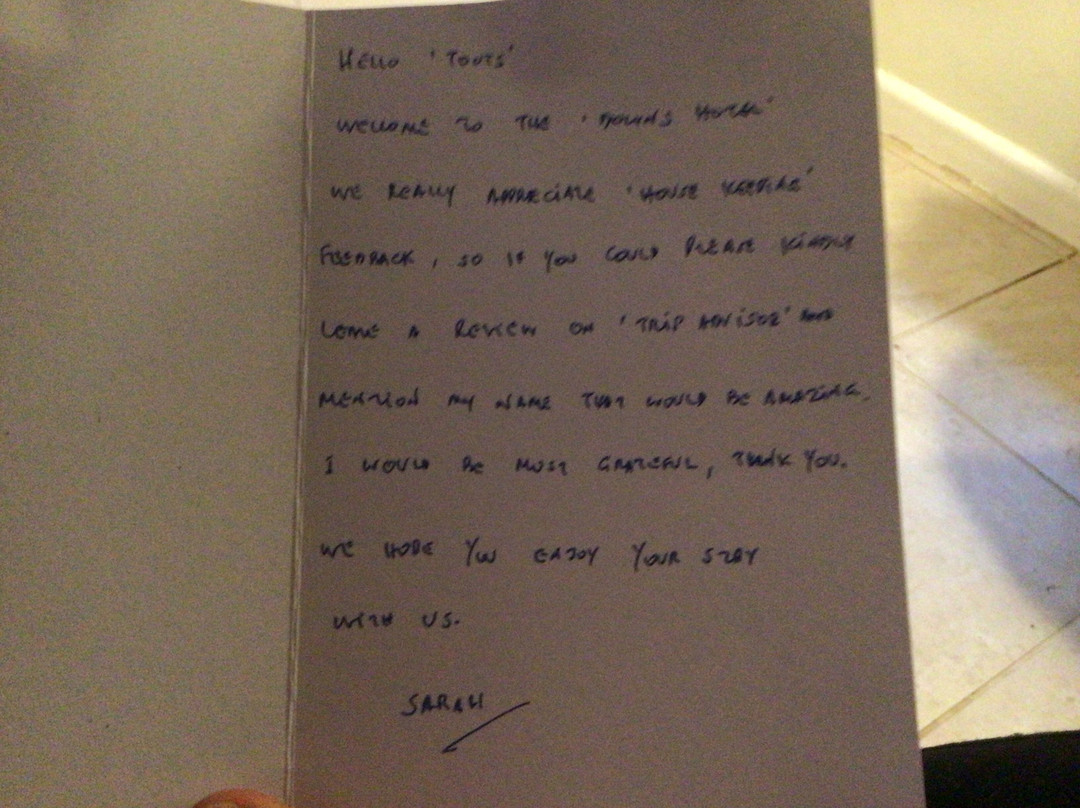 HELLO 'TOUTS'
WELCOME TO THE ' HOTEL'
WE REALLY APPRECIATE 'HOUSE KEEPING'
FEEDBACK, SO IF YOU COULD PLEASE KINDLY
LEAVE A REVIEW ON 'TRIP ADVISOR' AND
MENTION MY NAME THAT WOULD BE AMAZING.
I WOULD BE MOST GRATEFUL, THANK YOU.
WE HOPE YOU ENJOY YOUR STAY
WITH US.
SARAH